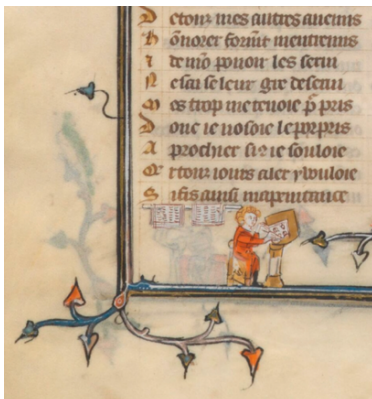 D e touz mes autres anemis
h õnorer forme̅t me tie̅ns
i de mõ pouoir les serui
N e sai se leur gre deserui
M es trop me tenoie p̃ pris
D onc ie nosoie le porpris
A prochier si 9 ie souloie
C r touz iours aler y vouloie
S i fis ainsi ma penitance